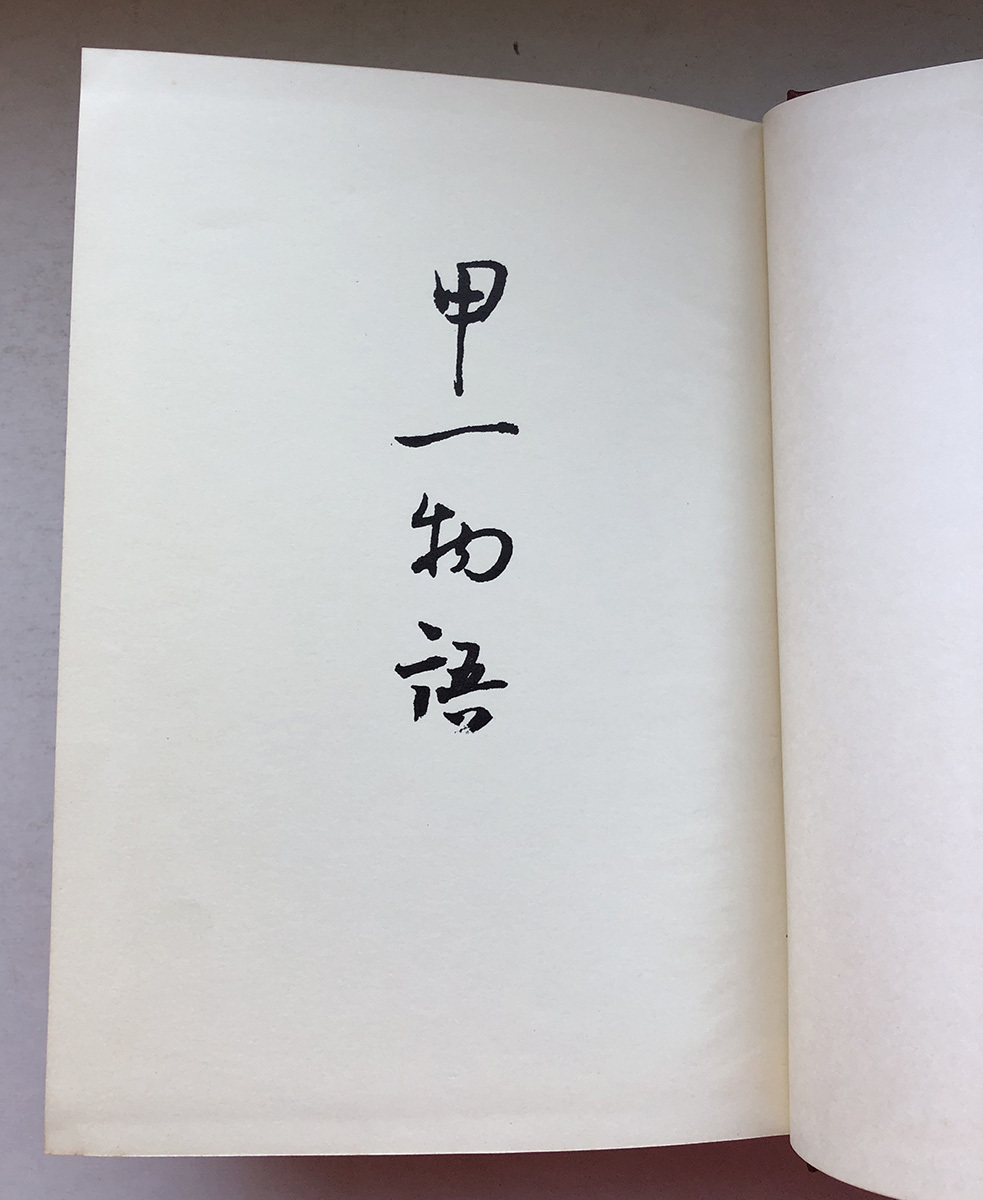 甲一物語